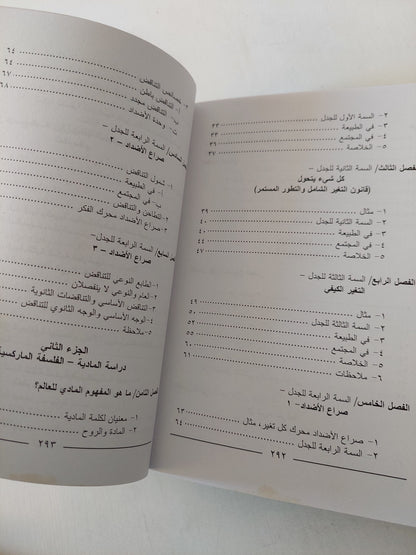 ٢- السمة الأولى للجدل ٣٣
٣- في الطبيعة ٣٣
٤- في المجتمع ٣٥
٥- الخلاصة ٣٧
الفصل الثالث/ السمة الثانية للجدل –
كل شيء يتحول
(قانون التغير الشامل والتطور المستمر)
١- مثال ٣٩
٢- السمة الثانية للجدل ٤٠
٣- في الطبيعة ٤٠
٤- في المجتمع ٤٤
٥- الخلاصة ٤٧
الفصل الرابع/ السمة الثالثة للجدل –
التغير الكيفي
١- مثال ٤٩
٢- السمة الثالثة للجدل ٥٠
٣- في الطبيعة ٥٢
٤- في المجتمع ٥٥
٥- الخلاصة ٦٠
٦- ملاحظات ٦١
الفصل الخامس/ السمة الرابعة للجدل –
صراع الأضداد – ١
١- صراع الأضداد محرك كل تغير، مثال ٦٣
٢- السمة الرابعة للجدل ٦٤
٢٩٢
خصائص التناقض ٦٤
أ- التناقض باطن ٦٤
ب- التناقض مجدد ٦٧
ت- وحدة الأضداد ٦٨
السمة الرابعة للجدل –
صراع الأضداد – ٢
١- شمول التناقض
أ- في الطبيعة
ب- في المجتمع
٢- التطاحن والتناقض
٣- صراع الأضداد محرك الفكر
السمة الرابعة للجدل –
صراع الأضداد – ٣
١- الطابع النوعي للتناقض
العام والنوعي لا ينفصلان
التناقض الأساسي والتناقضات الثانوية
٤- الوجه الأساسي والوجه الثانوي للتناقض
ملاحظة
الجزء الثاني
دراسة المادية – الفلسفة الماركسية
الفصل الثامن/ ما هو المفهوم المادي للعالم؟
١- معنيان لكلمة المادية
٢- المادة والروح
٢٩٣